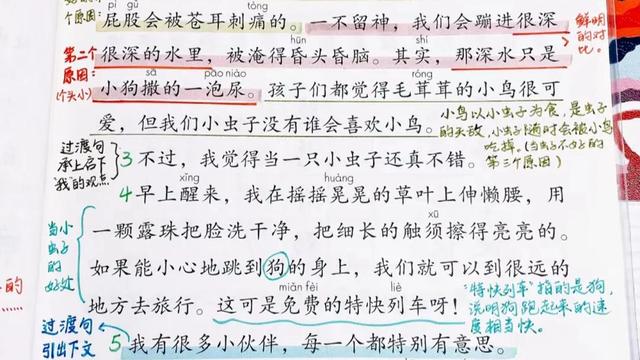 个原因:
pì gǔ
cì
屁股会被苍耳刺痛的。一不留神,我们会蹦进很深
鲜明的对比。
第二个原因:(个头小)
hūn
很深的水里,被淹得昏头昏脑。其实,那深水只是
sā pāo niào
小狗撒的一泡尿。孩子们都觉得毛茸茸的小鸟很可
róng
爱,但我们小虫子没有谁会喜欢小鸟。
小鸟以小虫子为食,是虫子的天敌,小虫子随时会被小鸟吃掉。(当虫子不好的第三个原因)
过渡句
承上启下
"我"的观点
3 不过,我觉得当一只小虫子还真不错。
xǐng huàng
4 早上醒来,我在摇摇晃晃的草叶上伸懒腰,用
xū
一颗露珠把脸洗干净,把细长的触须擦得亮亮的。
当小虫子的好处
如果能小心地跳到狗的身上,我们就可以到很远的
miǎn fèi liè
地方去旅行。这可是免费的特快列车呀!
"特快列车"指的是狗,说明狗跑起来的速度相当快。
的
过渡句
引出下文
5 我有很多小伙伴,每一个都特别有意思。